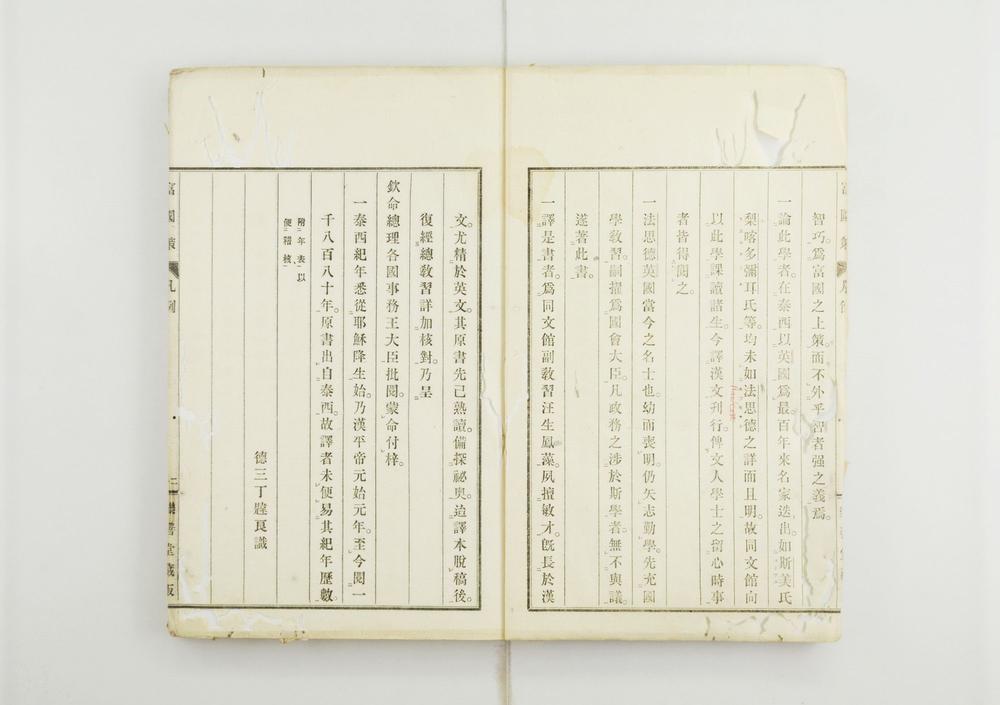 智巧爲富國之上策而不外乎智者强之義焉
一論此學者在泰西以英國爲最百年來名家迭出如斯美氏
梨喀多彌耳氏等均未如法思德之詳而且明故同文館向
以此學課讀諸生今譯漢文刊行俾文人學士之留心時事
者皆得閱之
一法思德英國當今之名士也幼而喪明仍矢志勤學先充國
學敎習嗣擢爲國會大臣凡政務之涉於斯學者無不與議
遂著此書
一譯是書者爲同文館副敎習汪生鳳藻夙擅敏才旣長於漢
文尤精於英文其原書先已熟讀備探祕奧迨譯本脫稿後
復經總敎習詳加核對乃呈
欽命總理各國事務王大臣批閱蒙命付梓
一泰西紀年悉從耶穌降生始乃漢平帝元始元年至今閱一
千八百八十年原書出自泰西故譯者未便易其紀年歷數
附年表以
便稽核
德三丁韙良識
富國策 凡例
二 樂善堂藏版